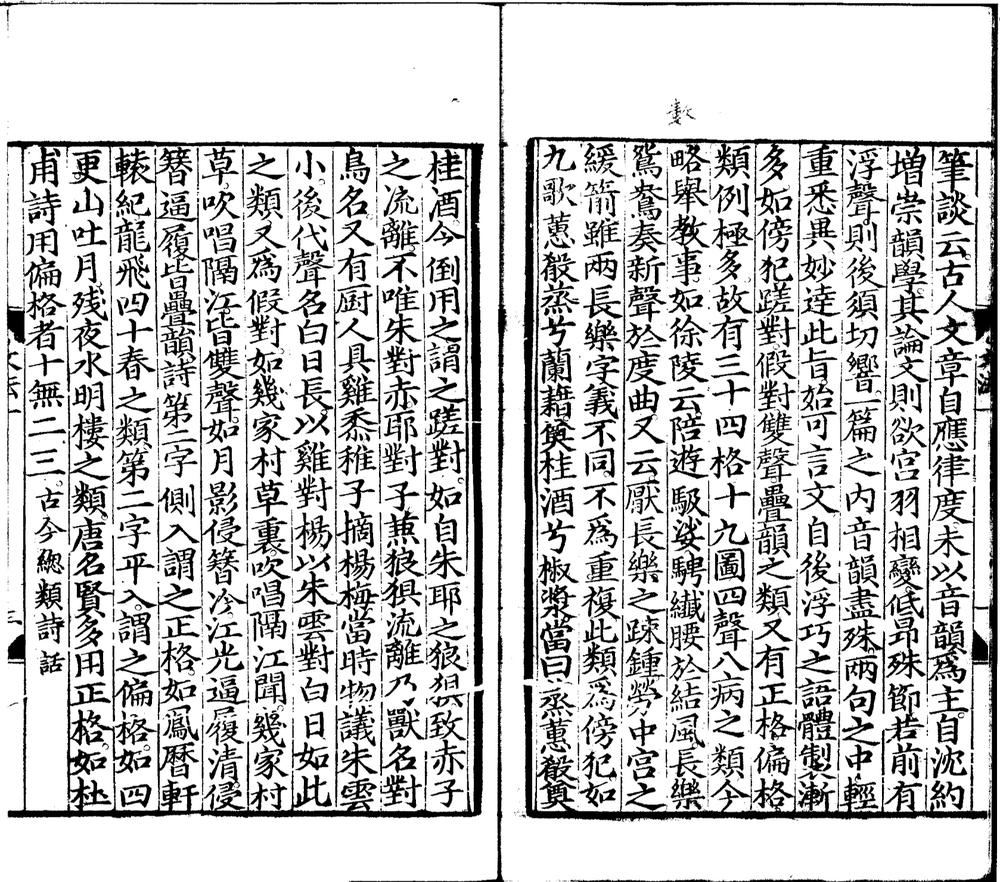 數
筆談云古人文章自應律度未以音韻爲主自沈約
増崇韻學其論文則欲宫羽相變低昂殊節若前有
浮聲則後須切響一篇之内音韻盡殊兩句之中輕
重悉異妙逹此旨始可言文自後浮巧之語體製漸
多如傍犯蹉對假對雙聲疊韻之類又有正格偏格
類例極多故有三十四格十九圖四聲八病之類今
略舉教事如徐陵云陪遊馺娑騁纎腰於結風長樂
鴛鴦奏新聲於度曲又云厭長樂之踈鍾勞中宫之
緩箭雖兩長樂字義不同不爲重複此類爲傍犯如
九歌蕙殽蒸兮蘭藉奠桂酒兮椒漿當曰蒸蕙殽奠
桂酒今倒用之謂之蹉對如自朱耶之狼狽致赤子
之流離不唯朱對赤耶對子兼狼狽流離乃獸名對
鳥名又有厨人具雞黍稚子摘楊梅當時物議朱雲
小後代聲名白日長以雞對楊以朱雲對白日如此
之類又爲假對如幾家村草裏吹唱隔江聞幾家村
草吹唱隔江皆雙聲如月影侵簪冷江光逼履清侵
簪逼履皆疊韻詩第二字側入謂之正格如鳳暦軒
轅紀龍飛四十春之類第二字平入謂之偏格如四
更山吐月残夜水明樓之類唐名賢多用正格如杜
甫詩用偏格者十無二三古今緫類詩話
文法一
三